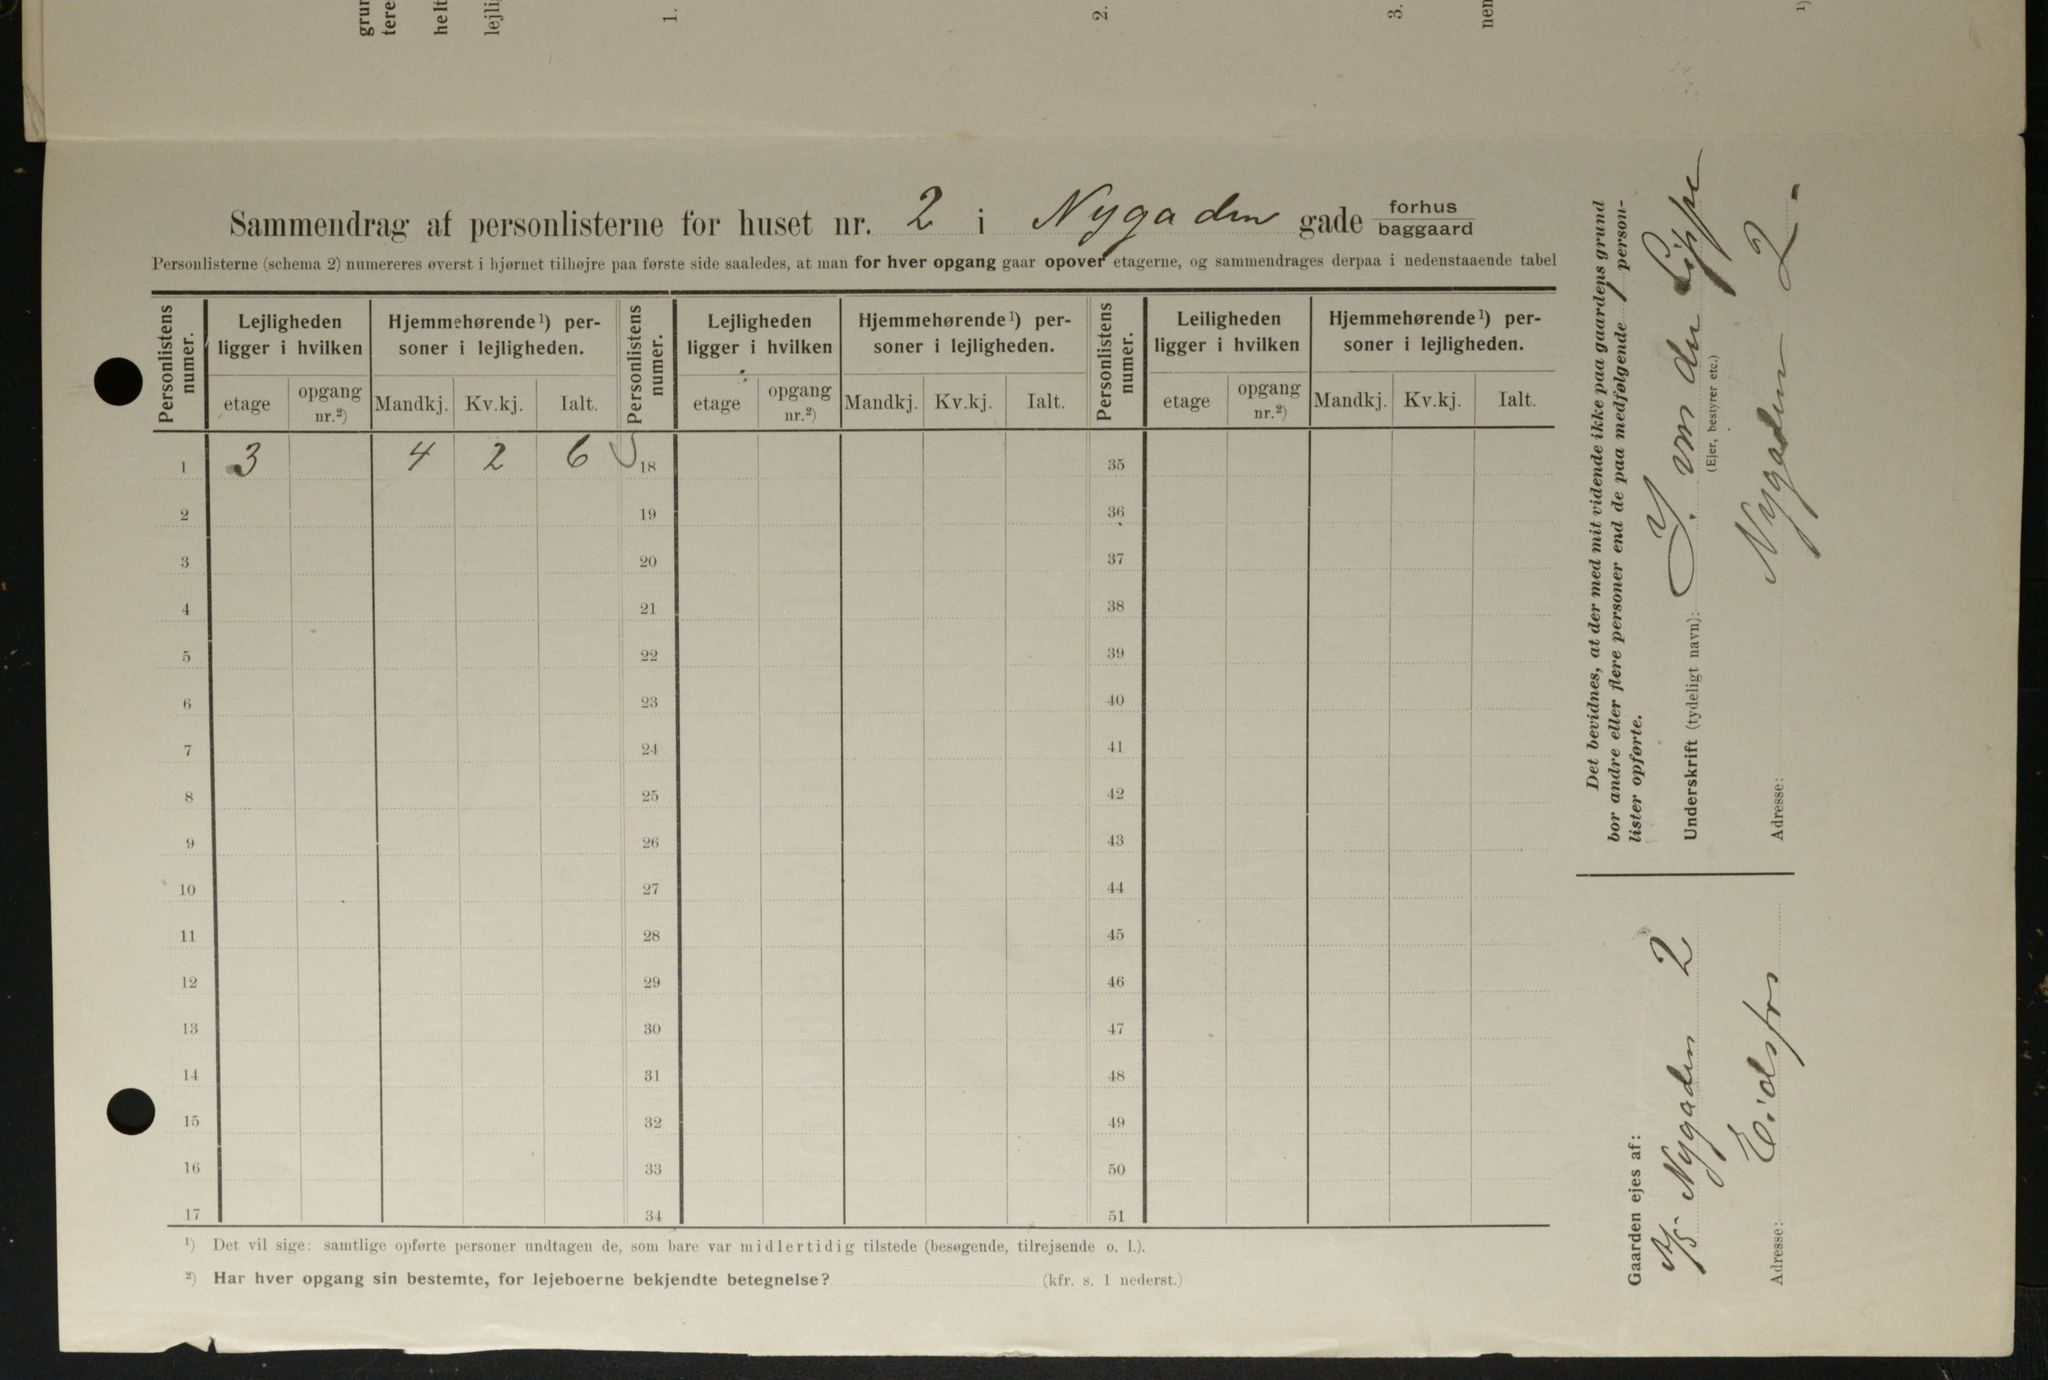 grun
tere
helt
lejlig
1.
2.
3.
nem
¹)
Sammendrag af personlisterne for huset nr. 2 i Nygaden gade forhus
baggaard
Personlisterne (schema 2) numereres øverst i hjørnet tilhøjre paa første side saaledes, at man for hver opgang gaar opover etagerne, og sammendrages derpaa i nedenstaaende tabel
Personlistens numer. Lejligheden ligger i hvilken Hjemmehørende¹) personer i lejligheden. Personlistens numer. Lejligheden ligger i hvilken Hjemmehørende¹) personer i lejligheden. Personlistens numer. Leiligheden ligger i hvilken Hjemmehørende¹) personer i lejligheden.
etage opgang nr.²) Mandkj. Kv.kj. Ialt. etage opgang nr.²) Mandkj. Kv.kj. Ialt. etage opgang nr.²) Mandkj. Kv.kj. Ialt.
1 3 4 2 6 18 35
2 19 36
3 20 37
4 21 38
5 22 39
6 23 40
7 24 41
8 25 42
9 26 43
10 27 44
11 28 45
12 29 46
13 30 47
14 31 48
15 32 49
16 33 50
17 34 51
¹) Det vil sige: samtlige opførte personer undtagen de, som bare var midlertidig tilstede (besøgende, tilrejsende o. l.).
²) Har hver opgang sin bestemte, for lejeboerne bekjendte betegnelse? (kfr. s. 1 nederst.)
Det bevidnes, at der med mit vidende ikke paa gaardens grund
bor andre eller flere personer end de paa medfølgende 1 person-
lister opførte.
Underskrift (tydeligt navn): J. von der Lippe
(Ejer, bestyrer etc.)
Adresse: Nygaden 2.
Gaarden ejes af:
A/S Nygaden 2
Adresse: Eidsfos